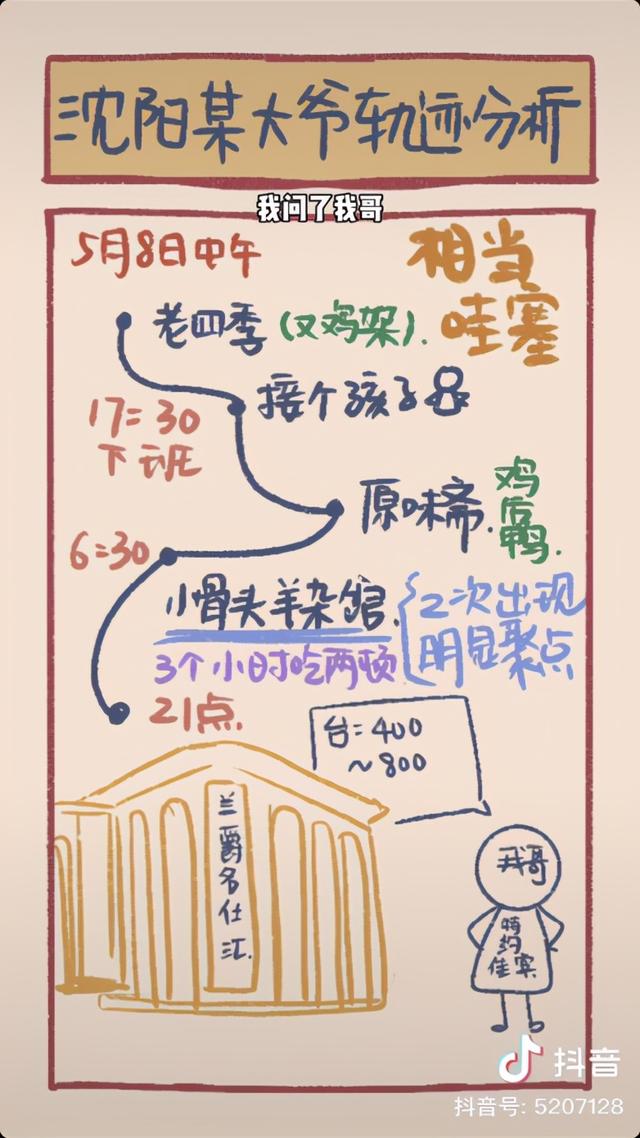 沈阳某大爷轨迹分析
我问了我哥
5月8日中午
相当
哇塞
老四季(又鸡架).
接个孩子
17:30
下班
原味斋.
鸡
后
鸭.
6:30
小骨头羊杂馆.
2次出现
明显聚点
3个小时吃两顿
21点.
台:400
~800
兰爵名仕汇.
我哥
特约
佳宾
抖音
抖音号: 5207128